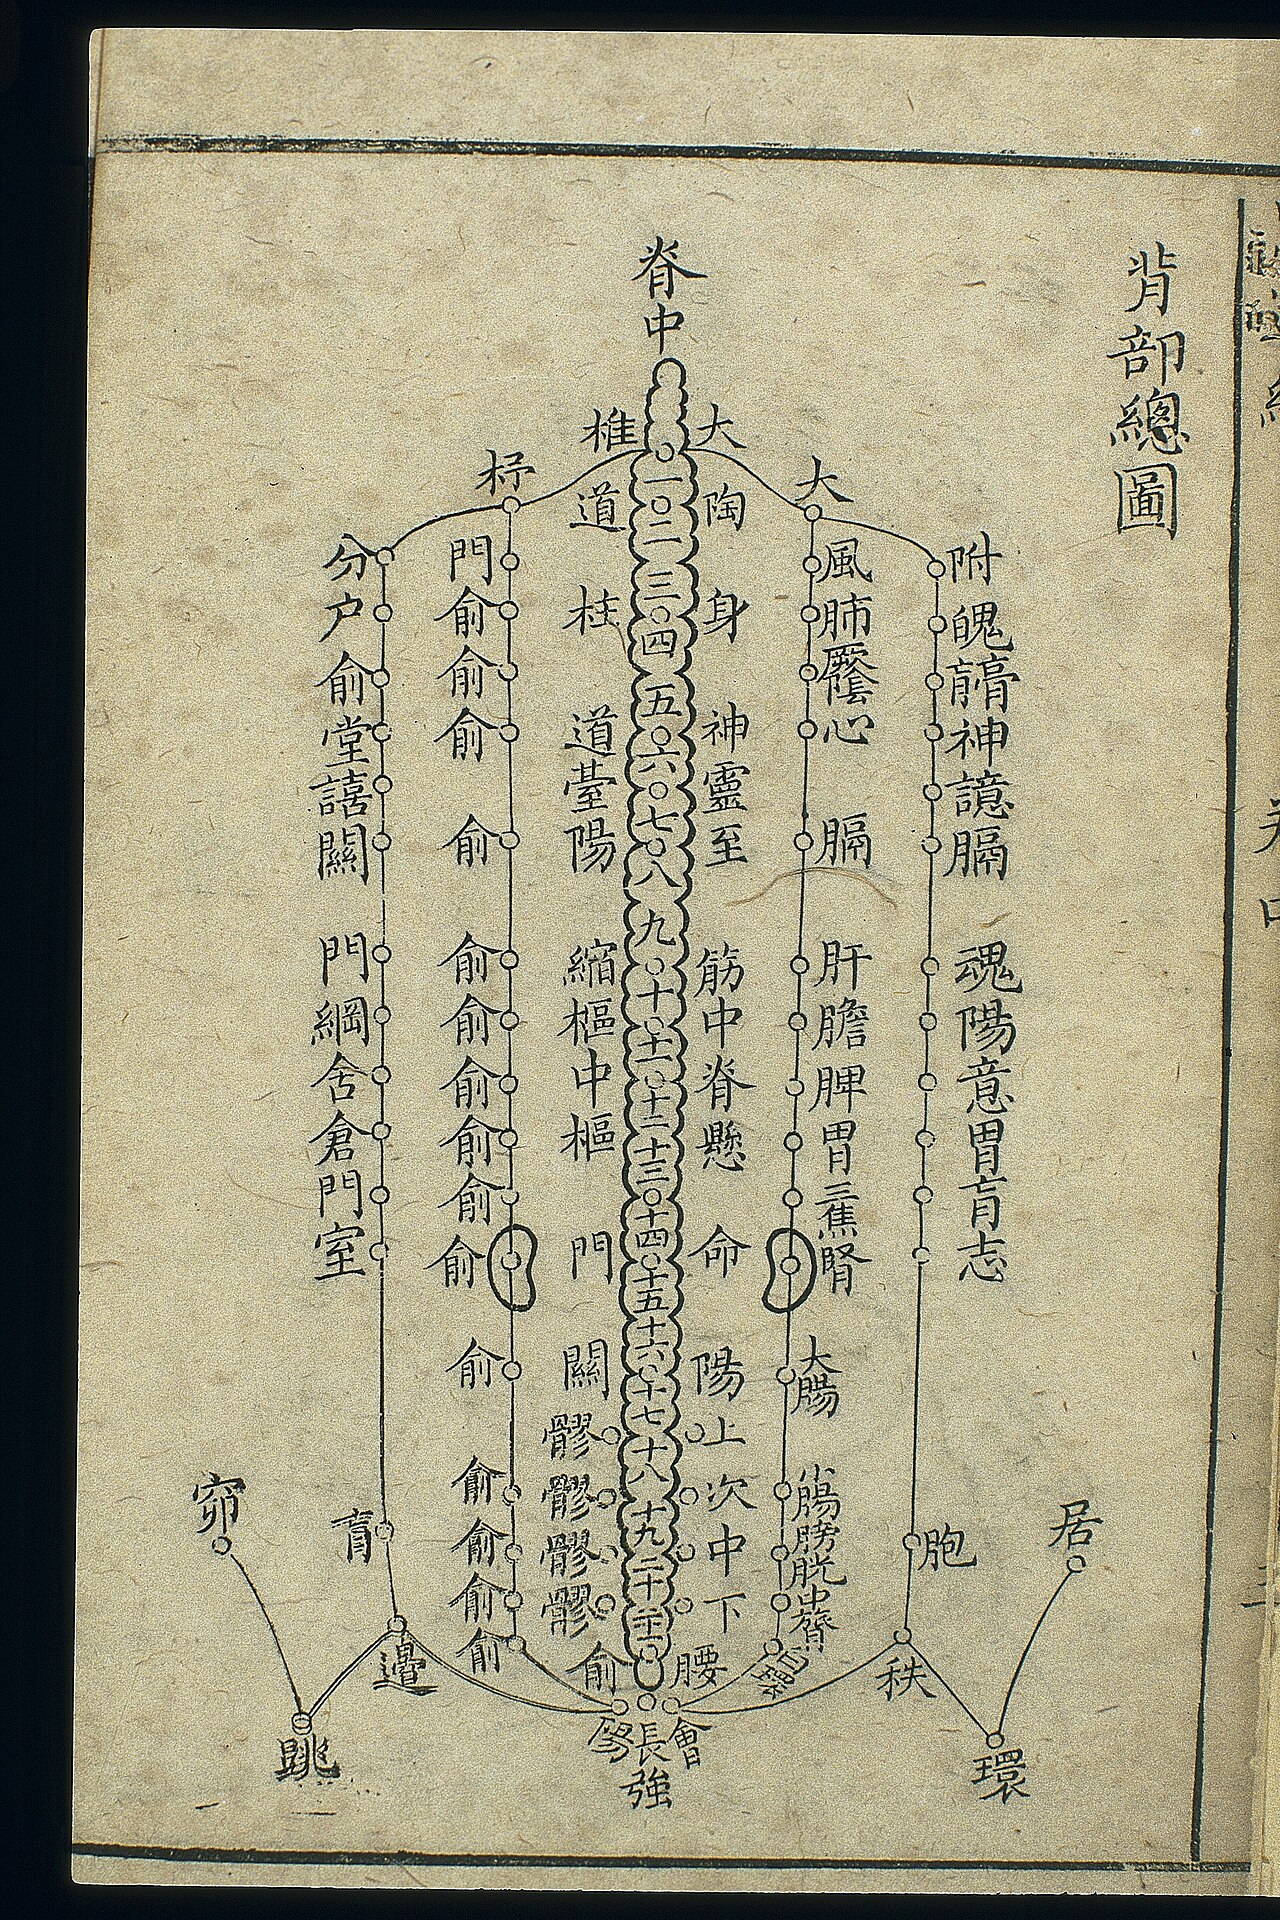 背部總圖
脊中
附魄膏神譩膈魂陽意胃肓志
胞
秩
居
環
大風肺厥陰心膈肝膽脾胃三焦腎大腸小腸膀胱中膂白環
大陶身神靈至筋中脊懸命陽上次中下腰會
一二三四五六七八九十十一十二十三十四十五十六十七十八十九二十二十一
長強
椎道柱道臺陽縮樞中樞門關髎髎髎髎俞
杼門俞俞俞俞俞俞俞俞俞俞俞俞俞俞俞
分户俞堂譆關門綱舍倉門室
肓
邊
窌
跳